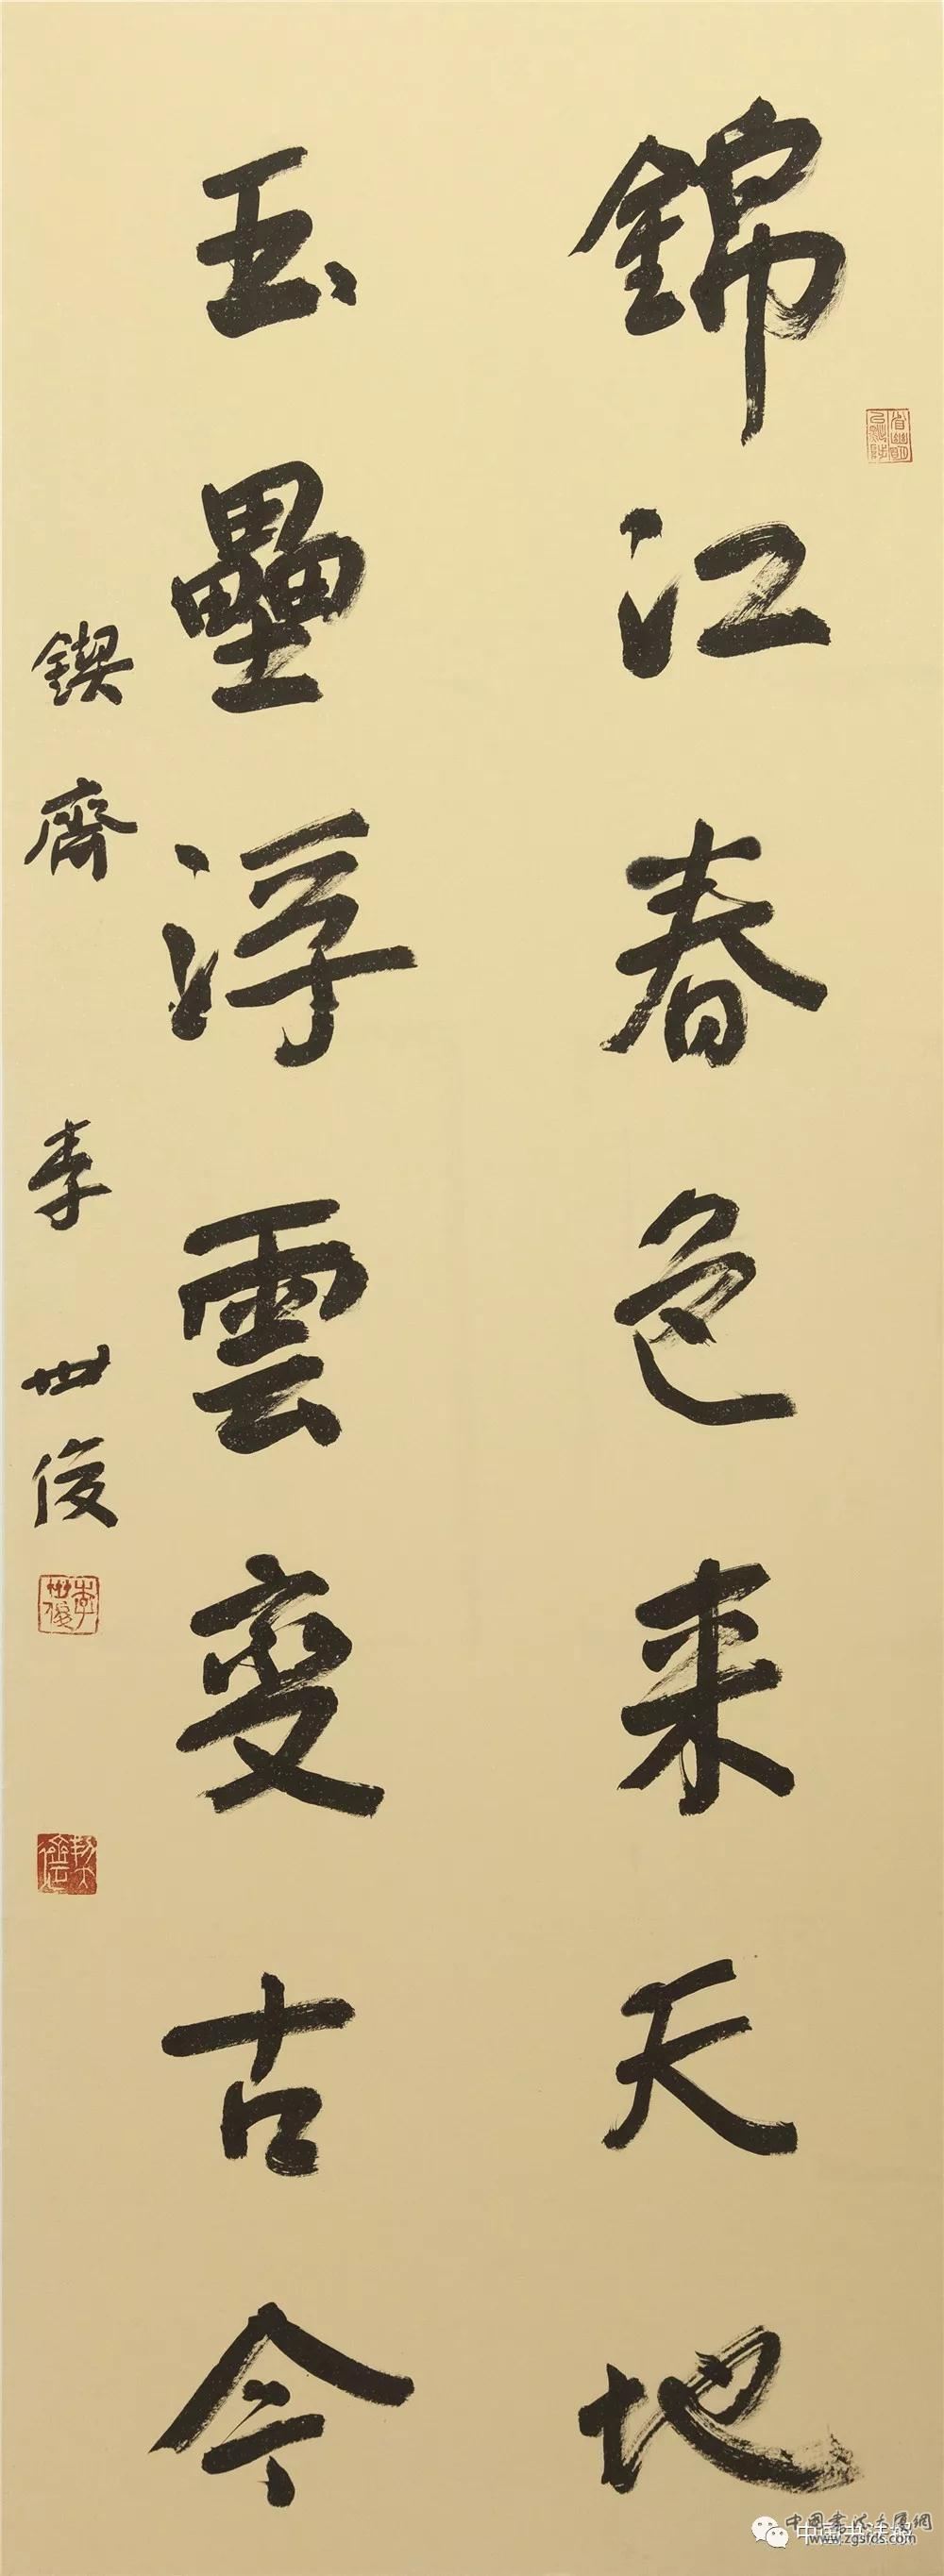 錦江春色来天地
玉壘浮雲变古今
鍥齋 李世俊
李世俊
中国书法家
www.zgsfds.com